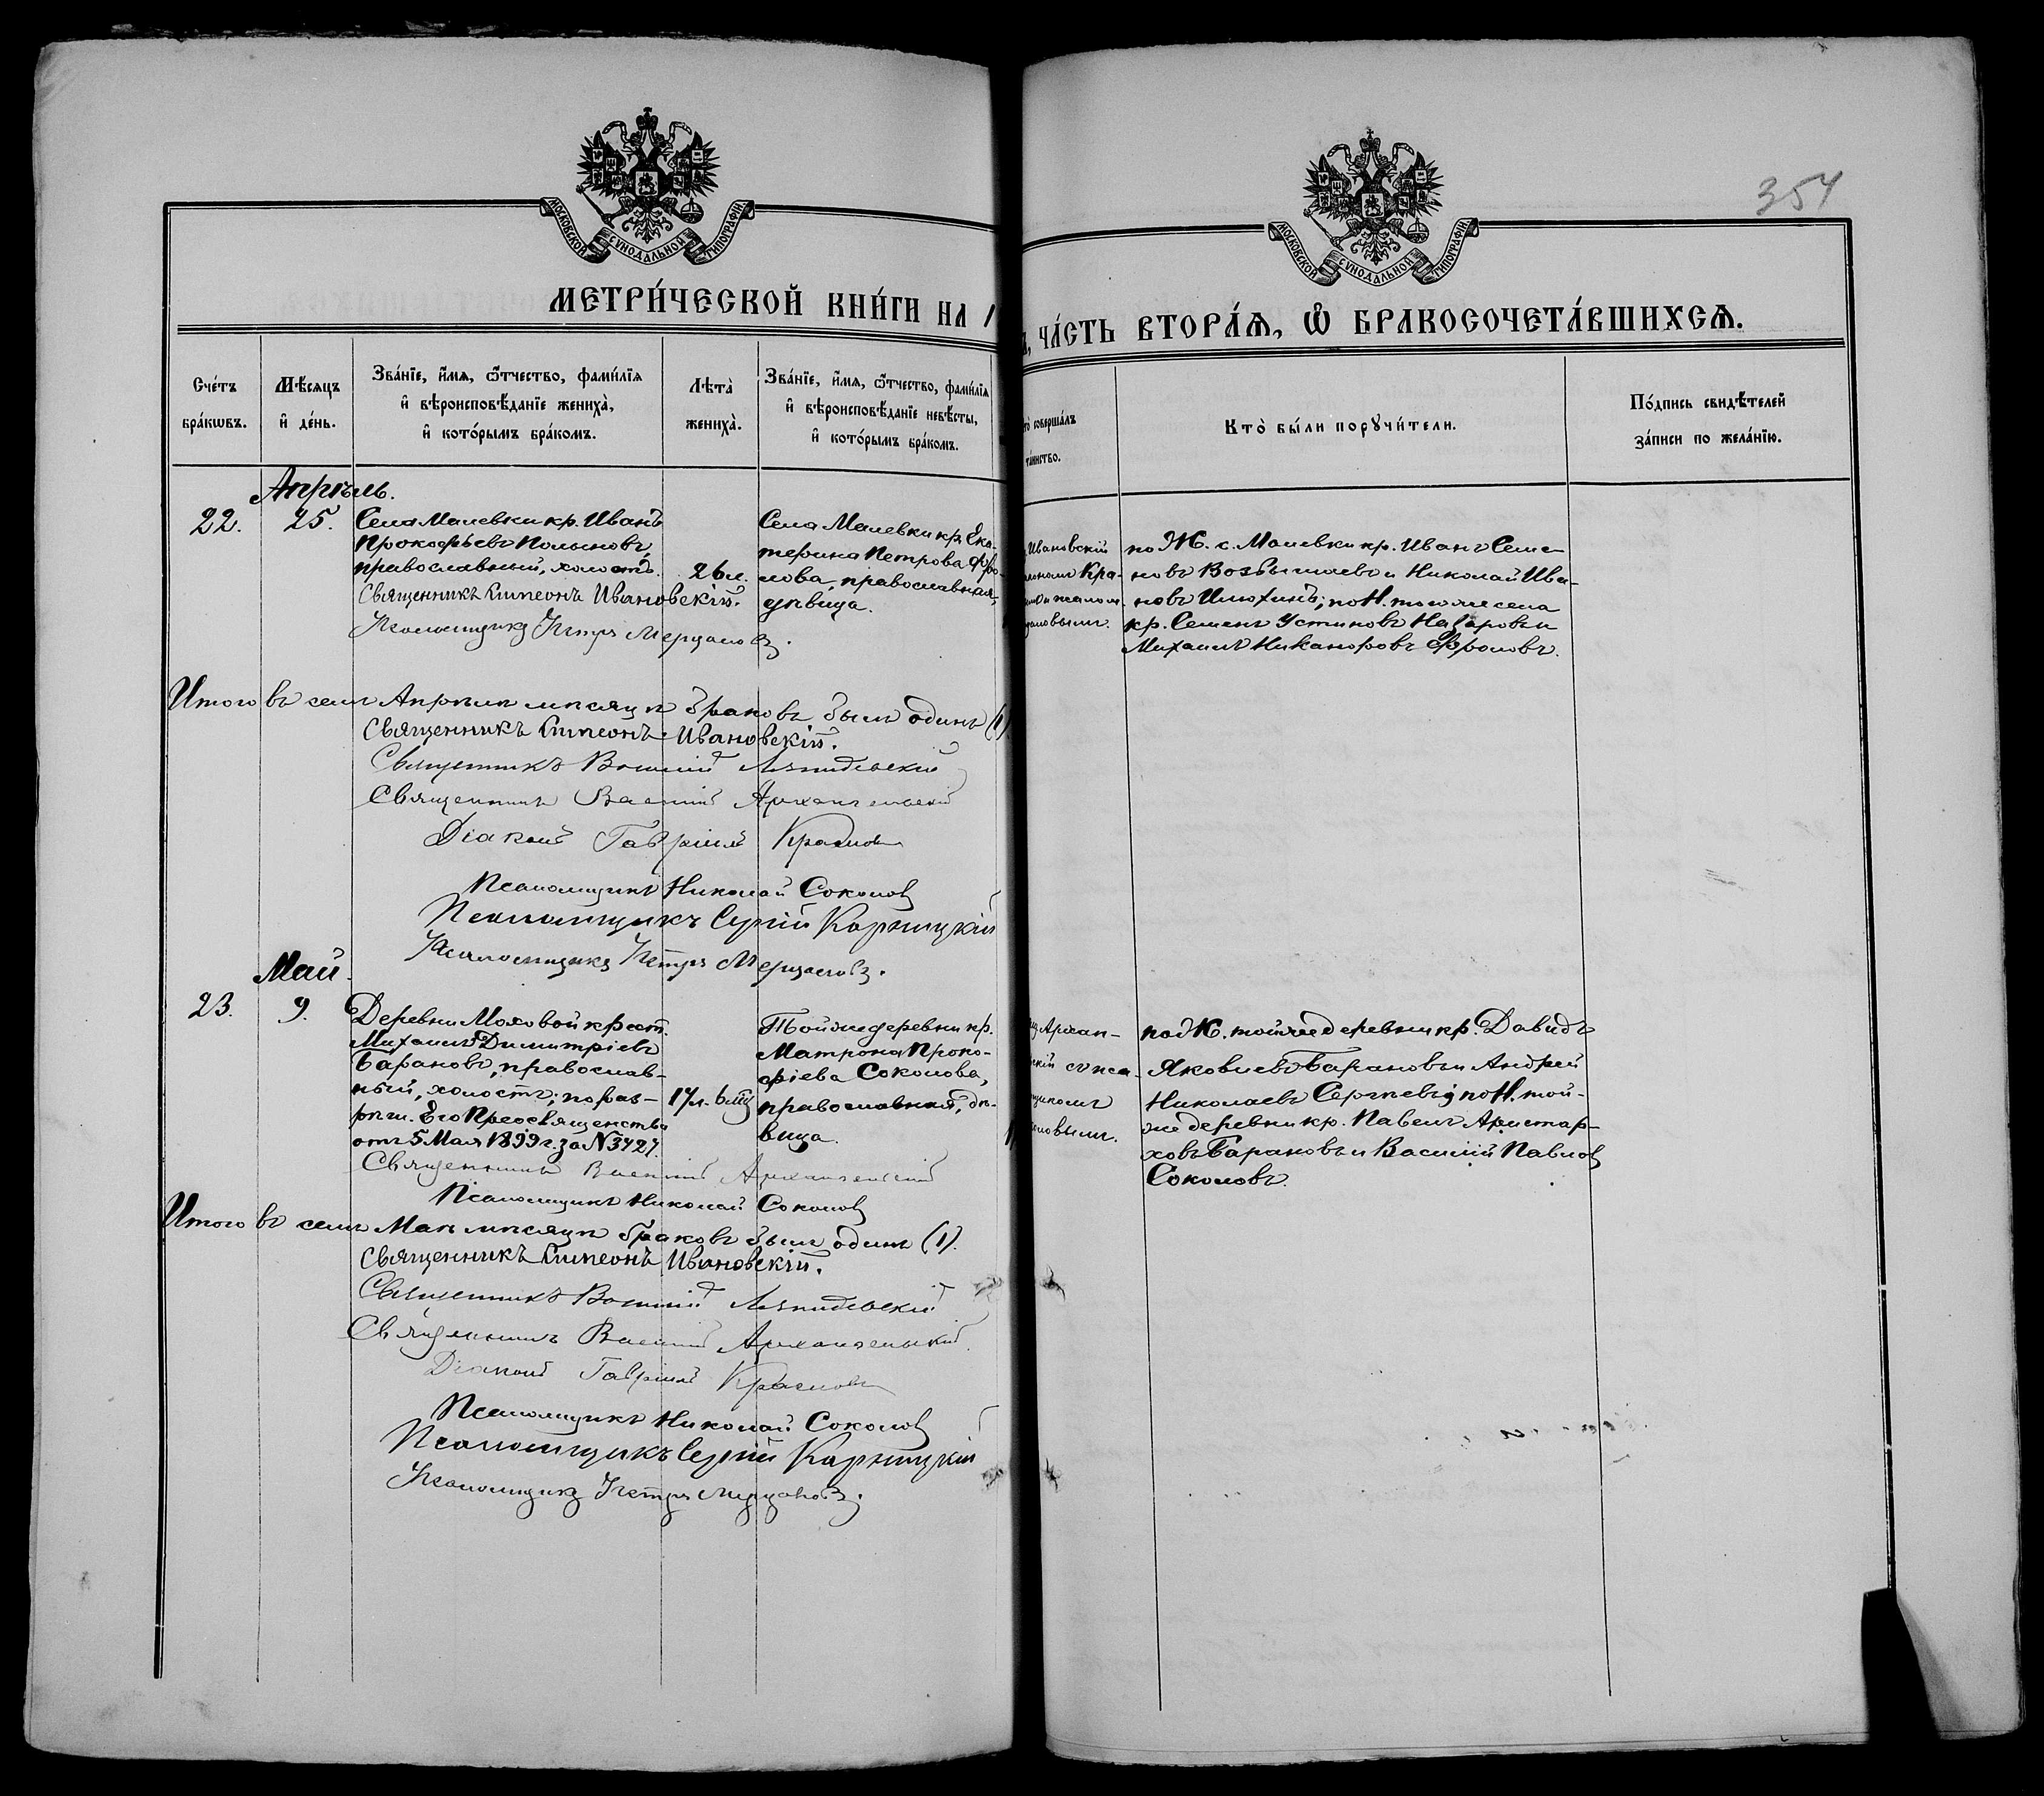 354
МОСКОВСКОЙ СѴНОДАЛЬНОЙ ТИПОГРАФІИ
МОСКОВСКОЙ СѴНОДАЛЬНОЙ ТИПОГРАФІИ
МЕТРИ́ЧЕСКОЙ КНИ́ГИ НА 1
ЧА́СТЬ ВТОРА́Я, Ѿ БРАКОСОЧЕТА́ВШИХСЯ.
Сче́тъ
бра́кѡвъ.
Мѣ́сяцъ
и҆ де́нь.
Зва́нїе, и҆́мя, ѻ҆́тчество, фами́лїя
и҆ вѣроисповѣ́данїе жениха̀,
и҆ кото́рымъ бра́комъ.
Лѣта̀
жениха̀.
Зва́нїе, и҆́мя, ѻ҆́тчество, фами́лїя
и҆ вѣроисповѣ́данїе невѣ́сты,
и҆ кото́рымъ бра́комъ.
соверша́лъ
та́инство.
Кто̀ бы́ли порꙋчи́тели.
По́дпись свидѣ́телей
за́писи по жела́нїю.
Апрѣль.
22.
25.
Села Малевки кр. Иванъ
Прокофьевъ Полыновъ,
православный, холостъ.
26 л.
Священникъ Симеонъ Ивановскій.
Псаломщикъ Петръ Мерцаловъ.
Села Малевки кр. Ека-
терина Петрова Фро-
лова, православная,
дѣвица.
Ивановскій
Кра-
псалом-
цаловымъ.
по Ж. с. Малевки кр. Иванъ Семе-
новъ Возбышаевъ и Николай Ива-
новъ Илюхинъ; по Н. того же села
кр. Семенъ Устиновъ Назаровъ и
Михаилъ Никаноровъ Фроловъ.
Итого въ семъ Апрѣлѣ мѣсяцѣ браковъ былъ одинъ (1)
Священникъ Симеонъ Ивановскій.
Священникъ Василій Ляпидевскій
Священникъ Василій Архангельскій
Діаконъ Гавріилъ Красновъ
Псаломщикъ Николай Соколовъ
Псаломщикъ Сергій Карницкій
Псаломщикъ Петръ Мерцаловъ.
Май.
23.
9.
Деревни Моховой крест.
Михаилъ Димитріевъ
Барановъ, православ-
ный, холостъ; по раз-
рѣш. Его Преосвященства
отъ 5 Мая 1899 г. за № 3427.
17 л. 6 мц
Священникъ Василій Архангельскій
Псаломщикъ Николай Соколовъ
Той же деревни кр.
Матрона Проко-
фіева Соколова,
православная, дѣ-
вица.
Архан-
скій с пса-
щикомъ
ловымъ.
под Ж. той же деревни кр. Давидъ
Яковлевъ Барановъ и Андрей
Николаевъ Сергѣевъ; по Н. той-
же деревни кр. Павелъ Аристар-
ховъ Барановъ и Василій Павловъ
Соколовъ.
Итого въ семъ Маѣ мѣсяцѣ браковъ былъ одинъ (1).
Священникъ Симеонъ Ивановскій.
Священникъ Василій Ляпидевскій
Священникъ Василій Архангельскій
Діаконъ Гавріилъ Красновъ
Псаломщикъ Николай Соколовъ
Псаломщикъ Сергій Карницкій
Псаломщикъ Петръ Мерцаловъ.